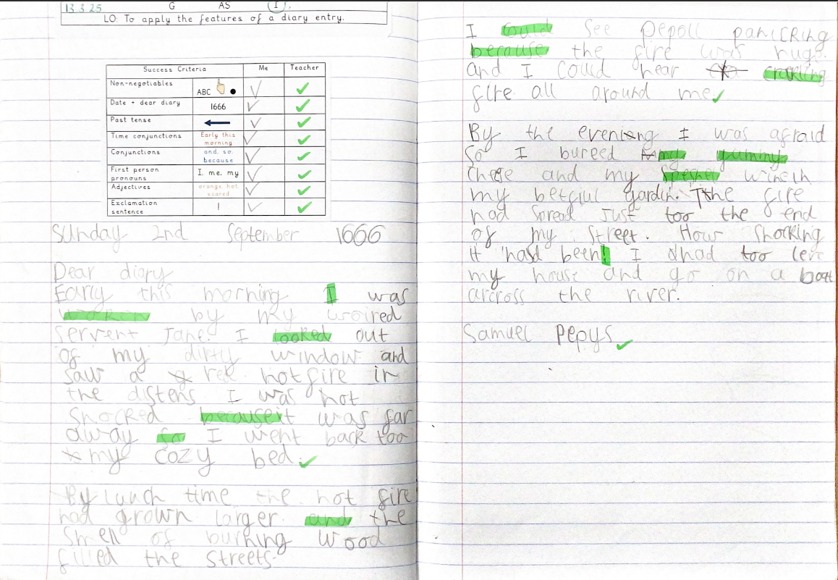 13.3.25 G AS I
LO: To apply the features of a diary entry.
Success Criteria Me Teacher
Non-negotiables ABC
Date + dear diary 1666
Past tense
Time conjunctions Early this morning
Conjunctions and, so, because
First person pronouns I, me, my
Adjectives orange hot scared
Exclamation sentence !
Sunday 2nd September 1666
Dear diary
Early this morning I was
by my woired
servent Jane. I looked out
of my dirty window and
saw a red hot fire in
the distens I was not
shocked because it was far
away so I went back too
my cozy bed.
By lunch time the hot fire
had grown larger and the
smell of burning wood
filled the streets.
I could see pepoll panicking
because the fire was hug
and I could hear crackling
fire all around me
By the evening I was afraid
So I bureed my
chese and my wine in
my betful gardin. The fire
had spread just too the end
of my street. How shocking
it had been! I had too leve
my house and go on a boat
arcross the river.
Samuel Pepys